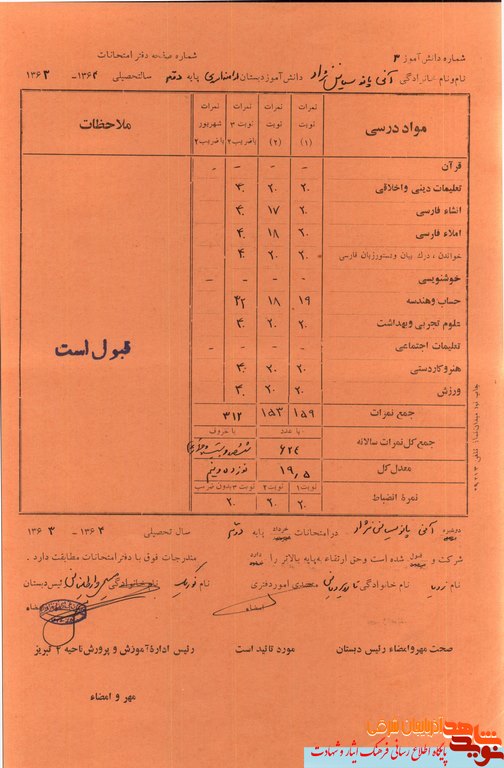 شماره دانش آموز ۳
شماره صفحه دفتر امتحانات
نام و نام خانوادگی دانش آموز دبستان پایه دوم سال تحصیلی ۱۳۶۴ - ۱۳۶۳
مواد درسی
نمرات نوبت (۱)
نمرات نوبت (۲)
نمرات نوبت ۳ باضریب ۲
نمرات شهریور باضریب ۲
ملاحظات
قرآن - - - -
تعلیمات دینی و اخلاقی ۲۰ ۲۰ ۴۰
انشاء فارسی ۲۰ ۱۷ ۴۰
املاء فارسی ۲۰ ۱۸ ۴۰
خواندن ، درک بیان و دستور زبان فارسی ۲۰ ۲۰ ۴۰
خوشنویسی - - - -
حساب و هندسه ۱۹ ۱۸
علوم تجربی و بهداشت ۲۰ ۲۰ ۴۰
تعلیمات اجتماعی - - - -
هنر و کاردستی ۲۰ ۲۰ ۴۰
ورزش ۲۰ ۲۰ ۴۰
قبول است
جمع نمرات ۱۵۹ ۱۵۳ ۳۱۲
جمع کل نمرات سالانه با عدد ۶۲۴ با حروف
معدل کل ۱۹٫۵ نوزده و نیم
نمرهٔ انضباط نوبت ۱ ۲۰ نوبت ۲ ۲۰ نوبت ۳ بدون ضریب ۲۰
دوشیزه در امتحانات خرداد پایه دوم سال تحصیلی ۱۳۶۴ ۱۳۶۳
شرکت و قبول شده است و حق ارتقاء به پایه بالاتر را دارد مندرجات فوق با دفتر امتحانات مطابقت دارد .
نام نام خانوادگی متصدی امور دفتری نام نام خانوادگی رئیس دبستان
امضاء
امضاء
صحت مهر و امضاء رئیس دبستان مورد تائید است رئیس اداره آموزش و پرورش ناحیه ۲ تبریز
مهر و امضاء
نوید شاهد
آذربایجان شرقی
پایگاه اطلاع رسانی فرهنگ ایثار و شهادت